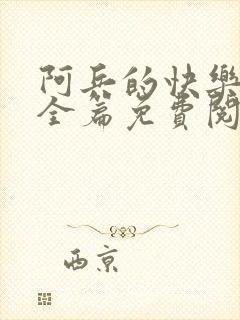 阿兵的快樂
全篇免費閱
西京